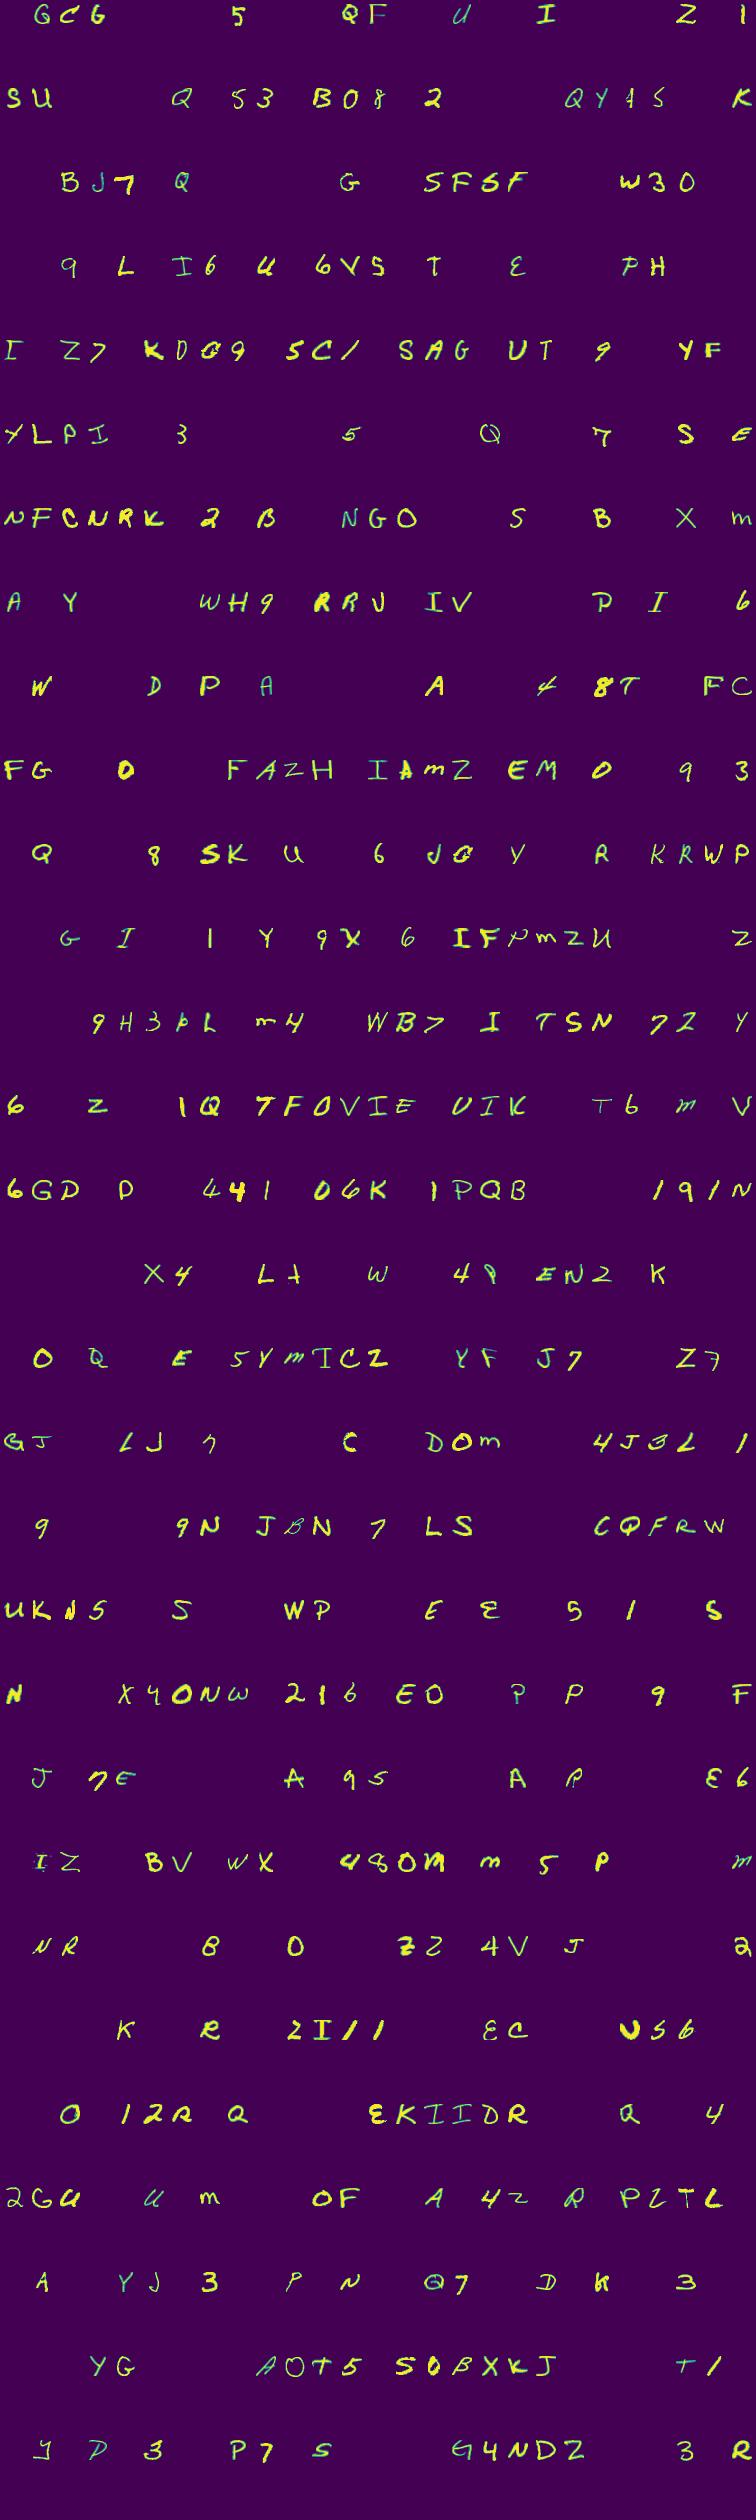 GCG 5 QF U I Z 1
SU Q 53 B08 2 QY15 K
BJ7 Q G SFSF W30
9 L I6 U 6VS T E PH
I Z7 KD09 5C1 SAG UT 9 YF
YLPI 3 5 Q 7 S E
NFCNRK 2 B NGO S B X m
A Y WH9 RRJ IV P I 6
W D P A A 4 8T FC
FG 0 FAZH IAmZ EM 0 9 3
Q 8 SK U 6 JO Y R KRWP
G I 1 Y 9X 6 IFPmZU Z
9H3PL m4 WB7 I TSN 7Z Y
6 Z 1Q 7FOVIE UIK T6 m V
6GD D 441 06K 1PQB 191N
X4 L1 W 4P EN2 K
0 Q E 5YmICZ YF J7 Z7
GJ LJ 7 C DOm 4J3L 1
9 9N JBN 7 LS CQFRW
UKNS S WP E E S 1 S
N X40NW 216 EO P P 9 F
J 7E A 95 A P E6
IZ BV WX 480M m 5 P m
NR 8 0 ZZ 4V J 2
K R ZI11 EC US6
0 12R Q EKIIDR Q 4
2GU U m OF A 4Z R PZTL
A YJ 3 P N Q7 D K 3
YG AOT5 SOBXKJ T1
Y D 3 P7 S G4NDZ 3 R